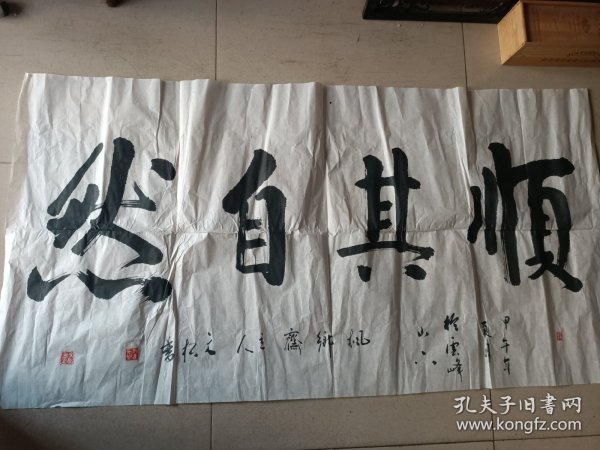 顺其自然
甲午年
夏月
於雲峰
山下
枫乡齋主人
元松書
孔夫子旧书网
www.kongfz.com